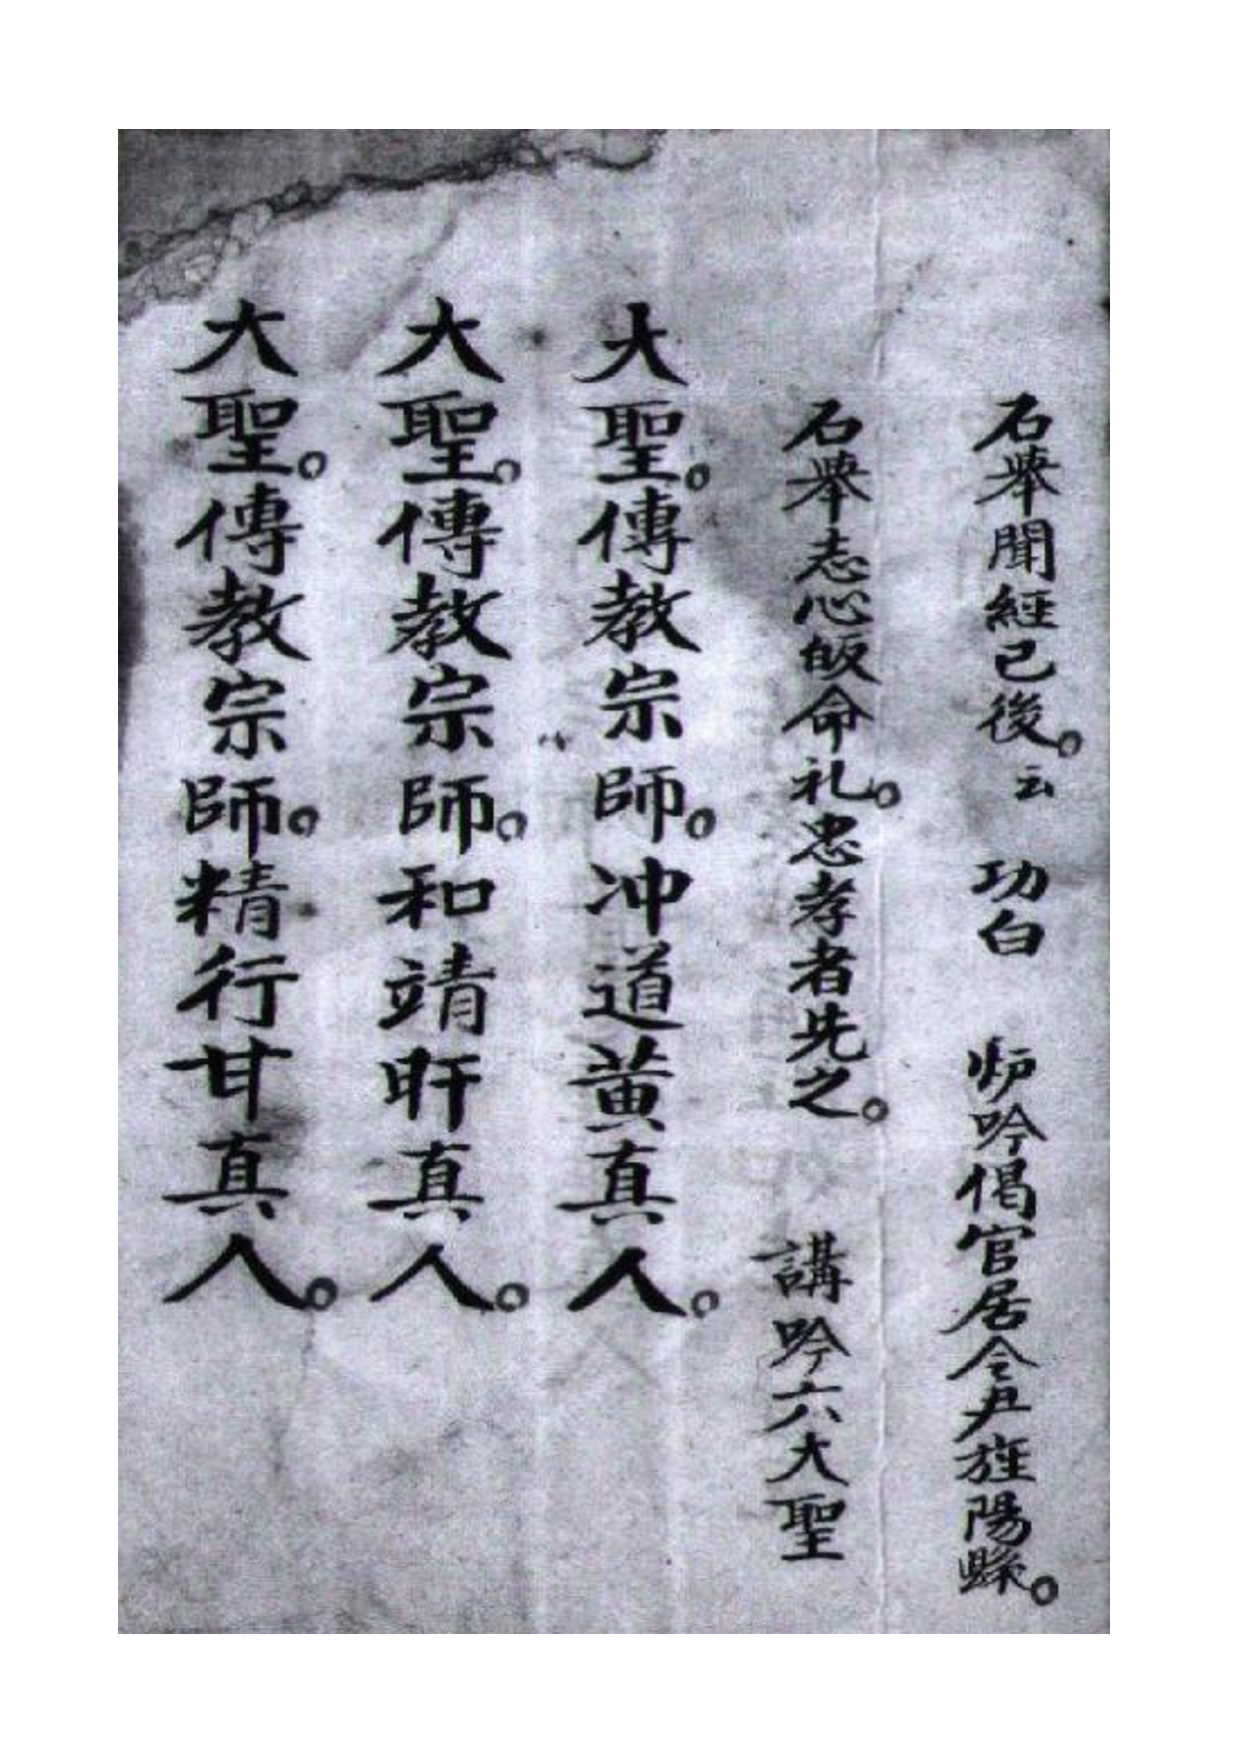 石舉聞經已後。云　功白　炉吟偈官居令尹旌陽縣。
石舉志心皈命礼。忠孝者先之。　講吟六大聖
大聖。傳教宗師。冲道黄真人。
大聖。傳教宗師。和靖盱真人。
大聖。傳教宗師。精行甘真人。